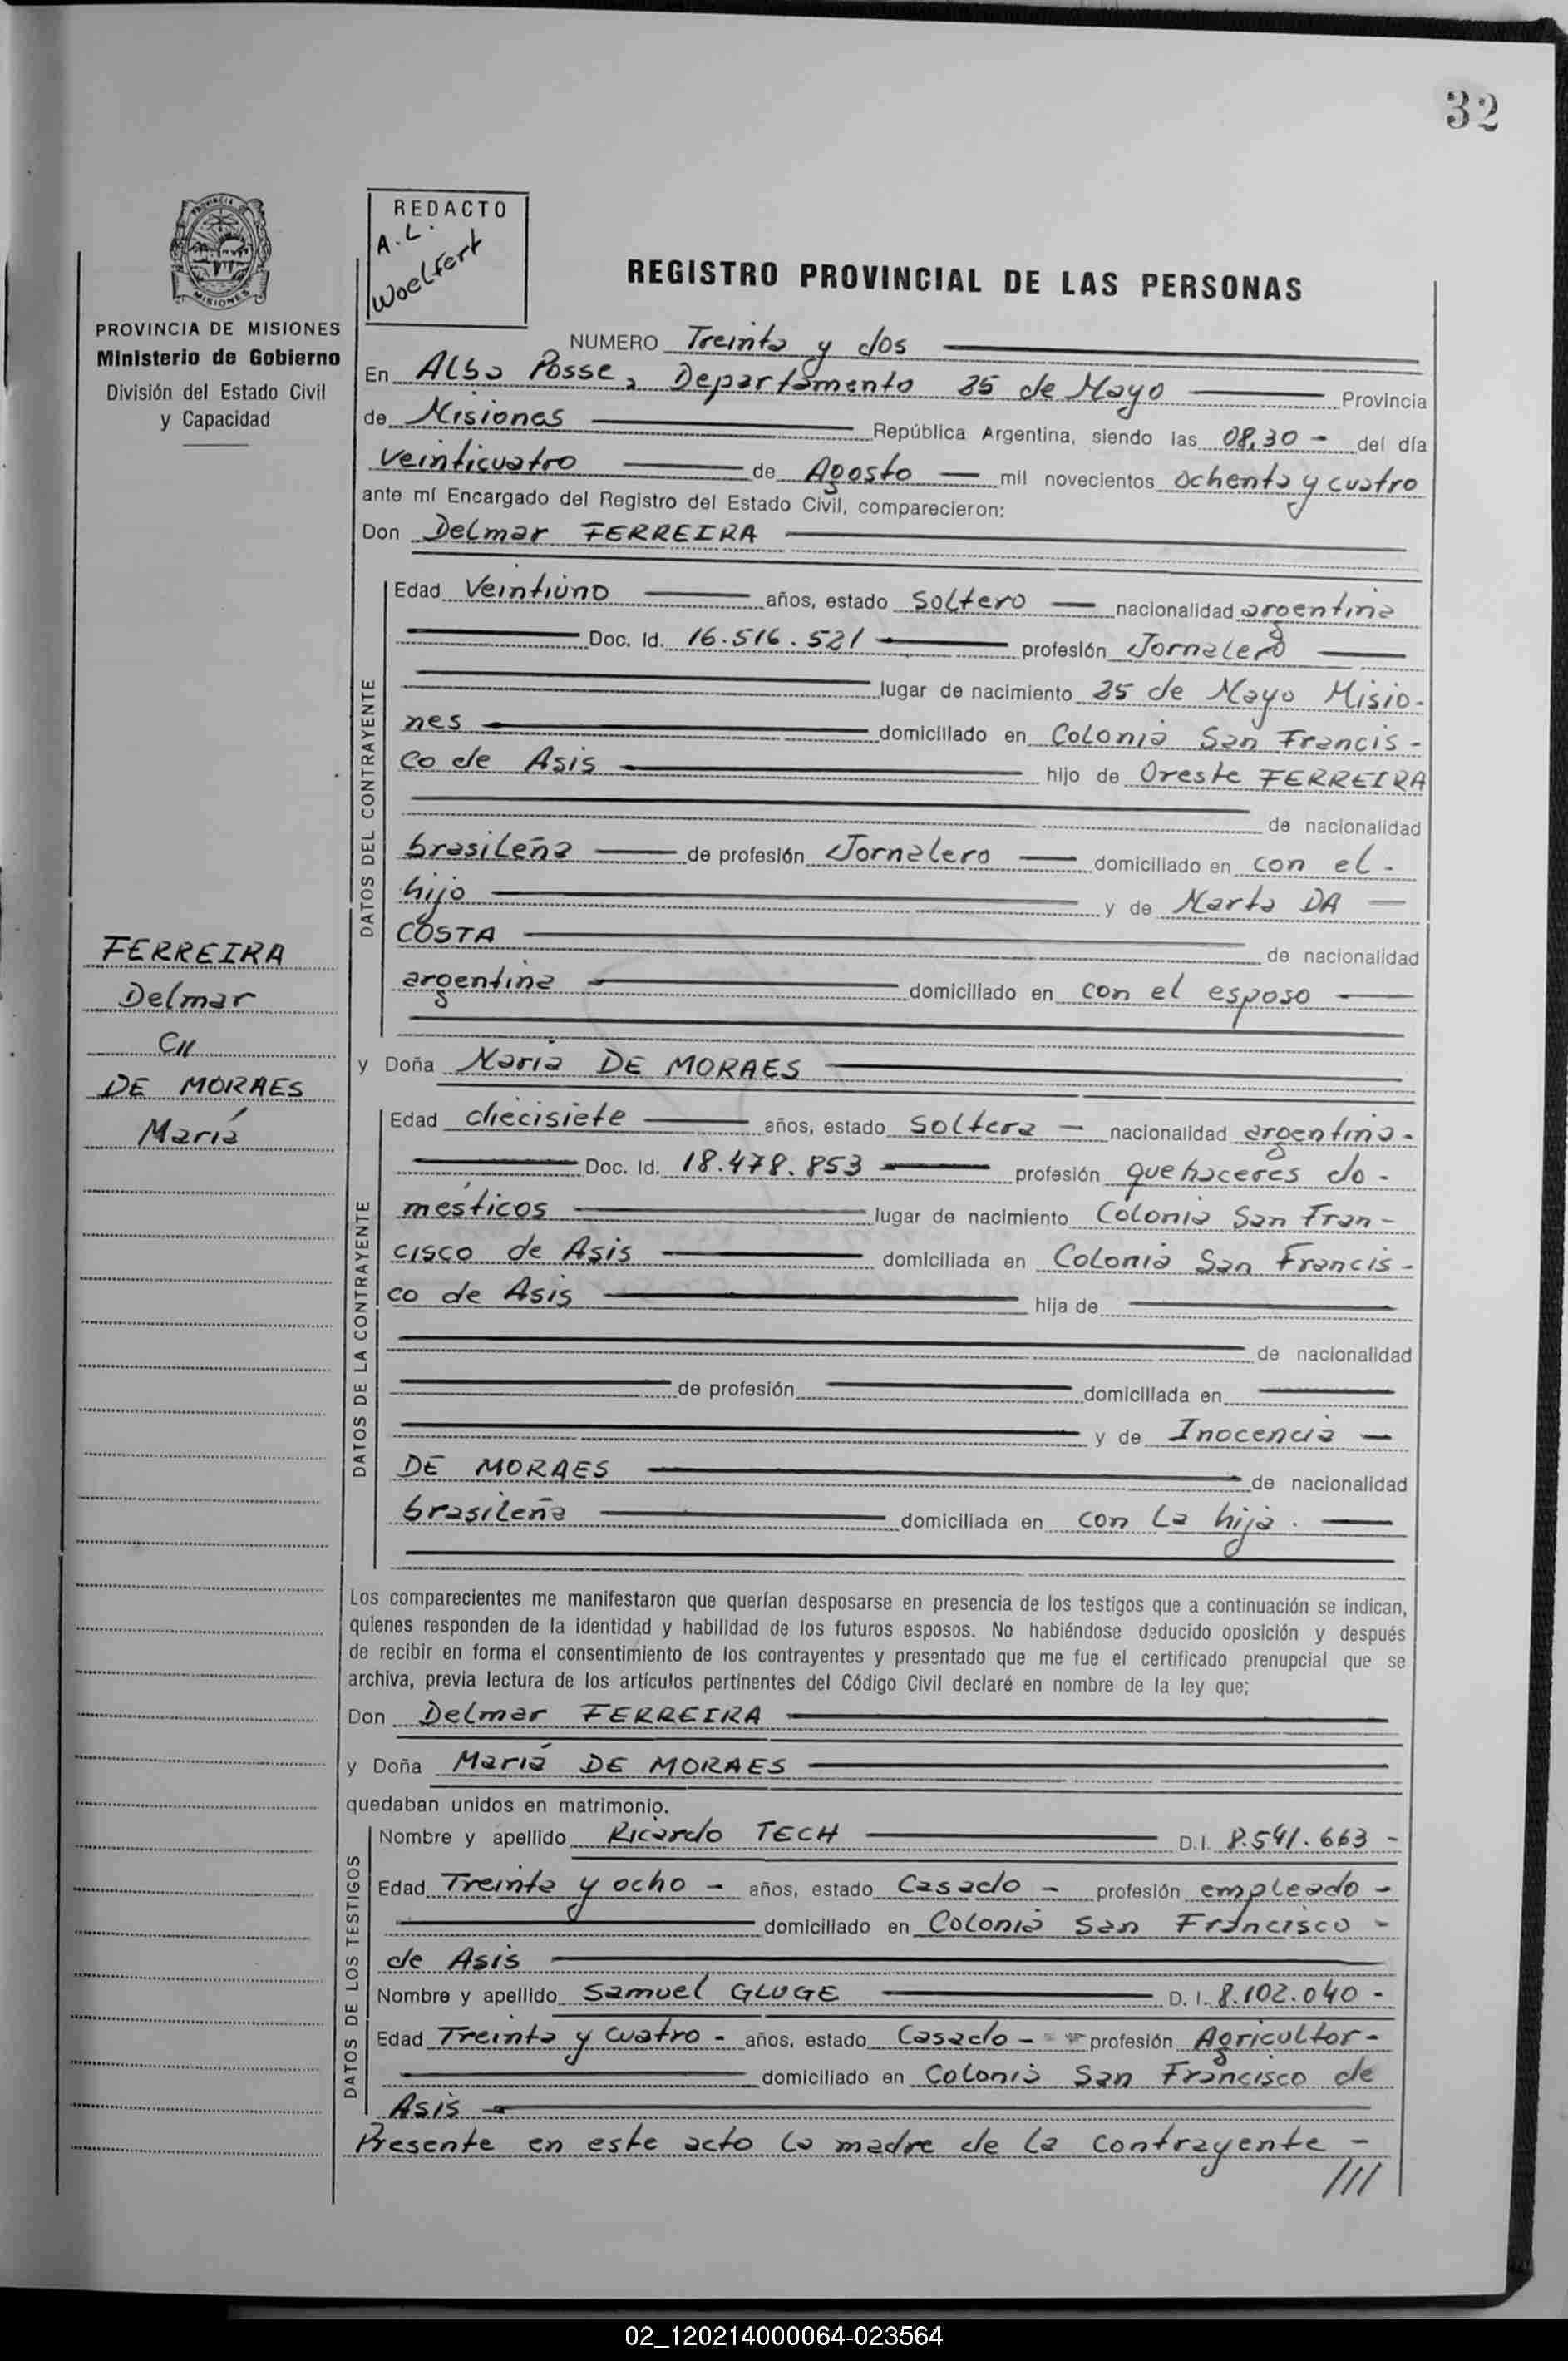 32
PROVINCIA DE
MISIONES
REDACTO
A. L.
Woelfert
REGISTRO PROVINCIAL DE LAS PERSONAS
PROVINCIA DE MISIONES
Ministerio de Gobierno
División del Estado Civil
y Capacidad
NUMERO Treinta y dos
En Alba Posse, Departamento 25 de Mayo Provincia
de Misiones República Argentina, siendo las 08,30 - del día
veinticuatro de Agosto mil novecientos ochenta y cuatro
ante mí Encargado del Registro del Estado Civil, comparecieron:
Don Delmar FERREIRA
DATOS DEL CONTRAYENTE
Edad Veintiuno años, estado Soltero nacionalidad argentina
Doc. Id. 16.516.521 profesión Jornalero
lugar de nacimiento 25 de Mayo Misio-
nes domiciliado en Colonia San Francis-
co de Asis hijo de Oreste FERREIRA
de nacionalidad
brasileña de profesión Jornalero domiciliado en con el -
hijo y de Marta DA
COSTA de nacionalidad
argentina domiciliado en con el esposo
FERREIRA
Delmar
C//
DE MORAES
María
y Doña María DE MORAES
DATOS DE LA CONTRAYENTE
Edad diecisiete años, estado Soltera nacionalidad argentina-
Doc. Id. 18.478.853 profesión quehaceres do-
mésticos lugar de nacimiento Colonia San Fran-
cisco de Asis domiciliada en Colonia San Francis-
co de Asis hija de
de nacionalidad
de profesión domiciliada en
y de Inocencia
DE MORAES de nacionalidad
brasileña domiciliada en con la hija.
Los comparecientes me manifestaron que querían desposarse en presencia de los testigos que a continuación se indican,
quienes responden de la identidad y habilidad de los futuros esposos. No habiéndose deducido oposición y después
de recibir en forma el consentimiento de los contrayentes y presentado que me fue el certificado prenupcial que se
archiva, previa lectura de los artículos pertinentes del Código Civil declaré en nombre de la ley que;
Don Delmar FERREIRA
y Doña María DE MORAES
quedaban unidos en matrimonio.
DATOS DE LOS TESTIGOS
Nombre y apellido Ricardo TECH D.I. 8.541.663 -
Edad Treinta y ocho - años, estado Casado - profesión empleado -
domiciliado en Colonia San Francisco -
de Asis
Nombre y apellido Samuel GLUGE D. I. 8.102.040 -
Edad Treinta y cuatro - años, estado Casado - profesión Agricultor -
domiciliado en Colonia San Francisco de
Asis
Presente en este acto la madre de la contrayente -
///
02_120214000064-023564